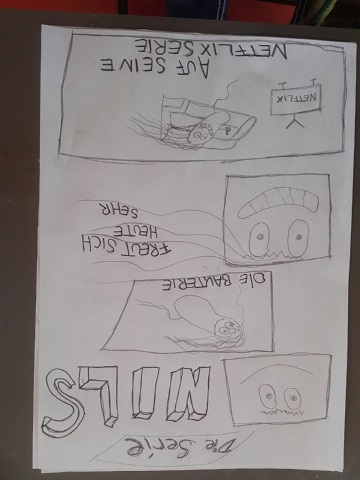 Die Serie
NILS
DIE BAKTERIE
FREUT SICH
HEUTE
SEHR
NETFLIX
AUF SEINE
NETFLIX SERIE